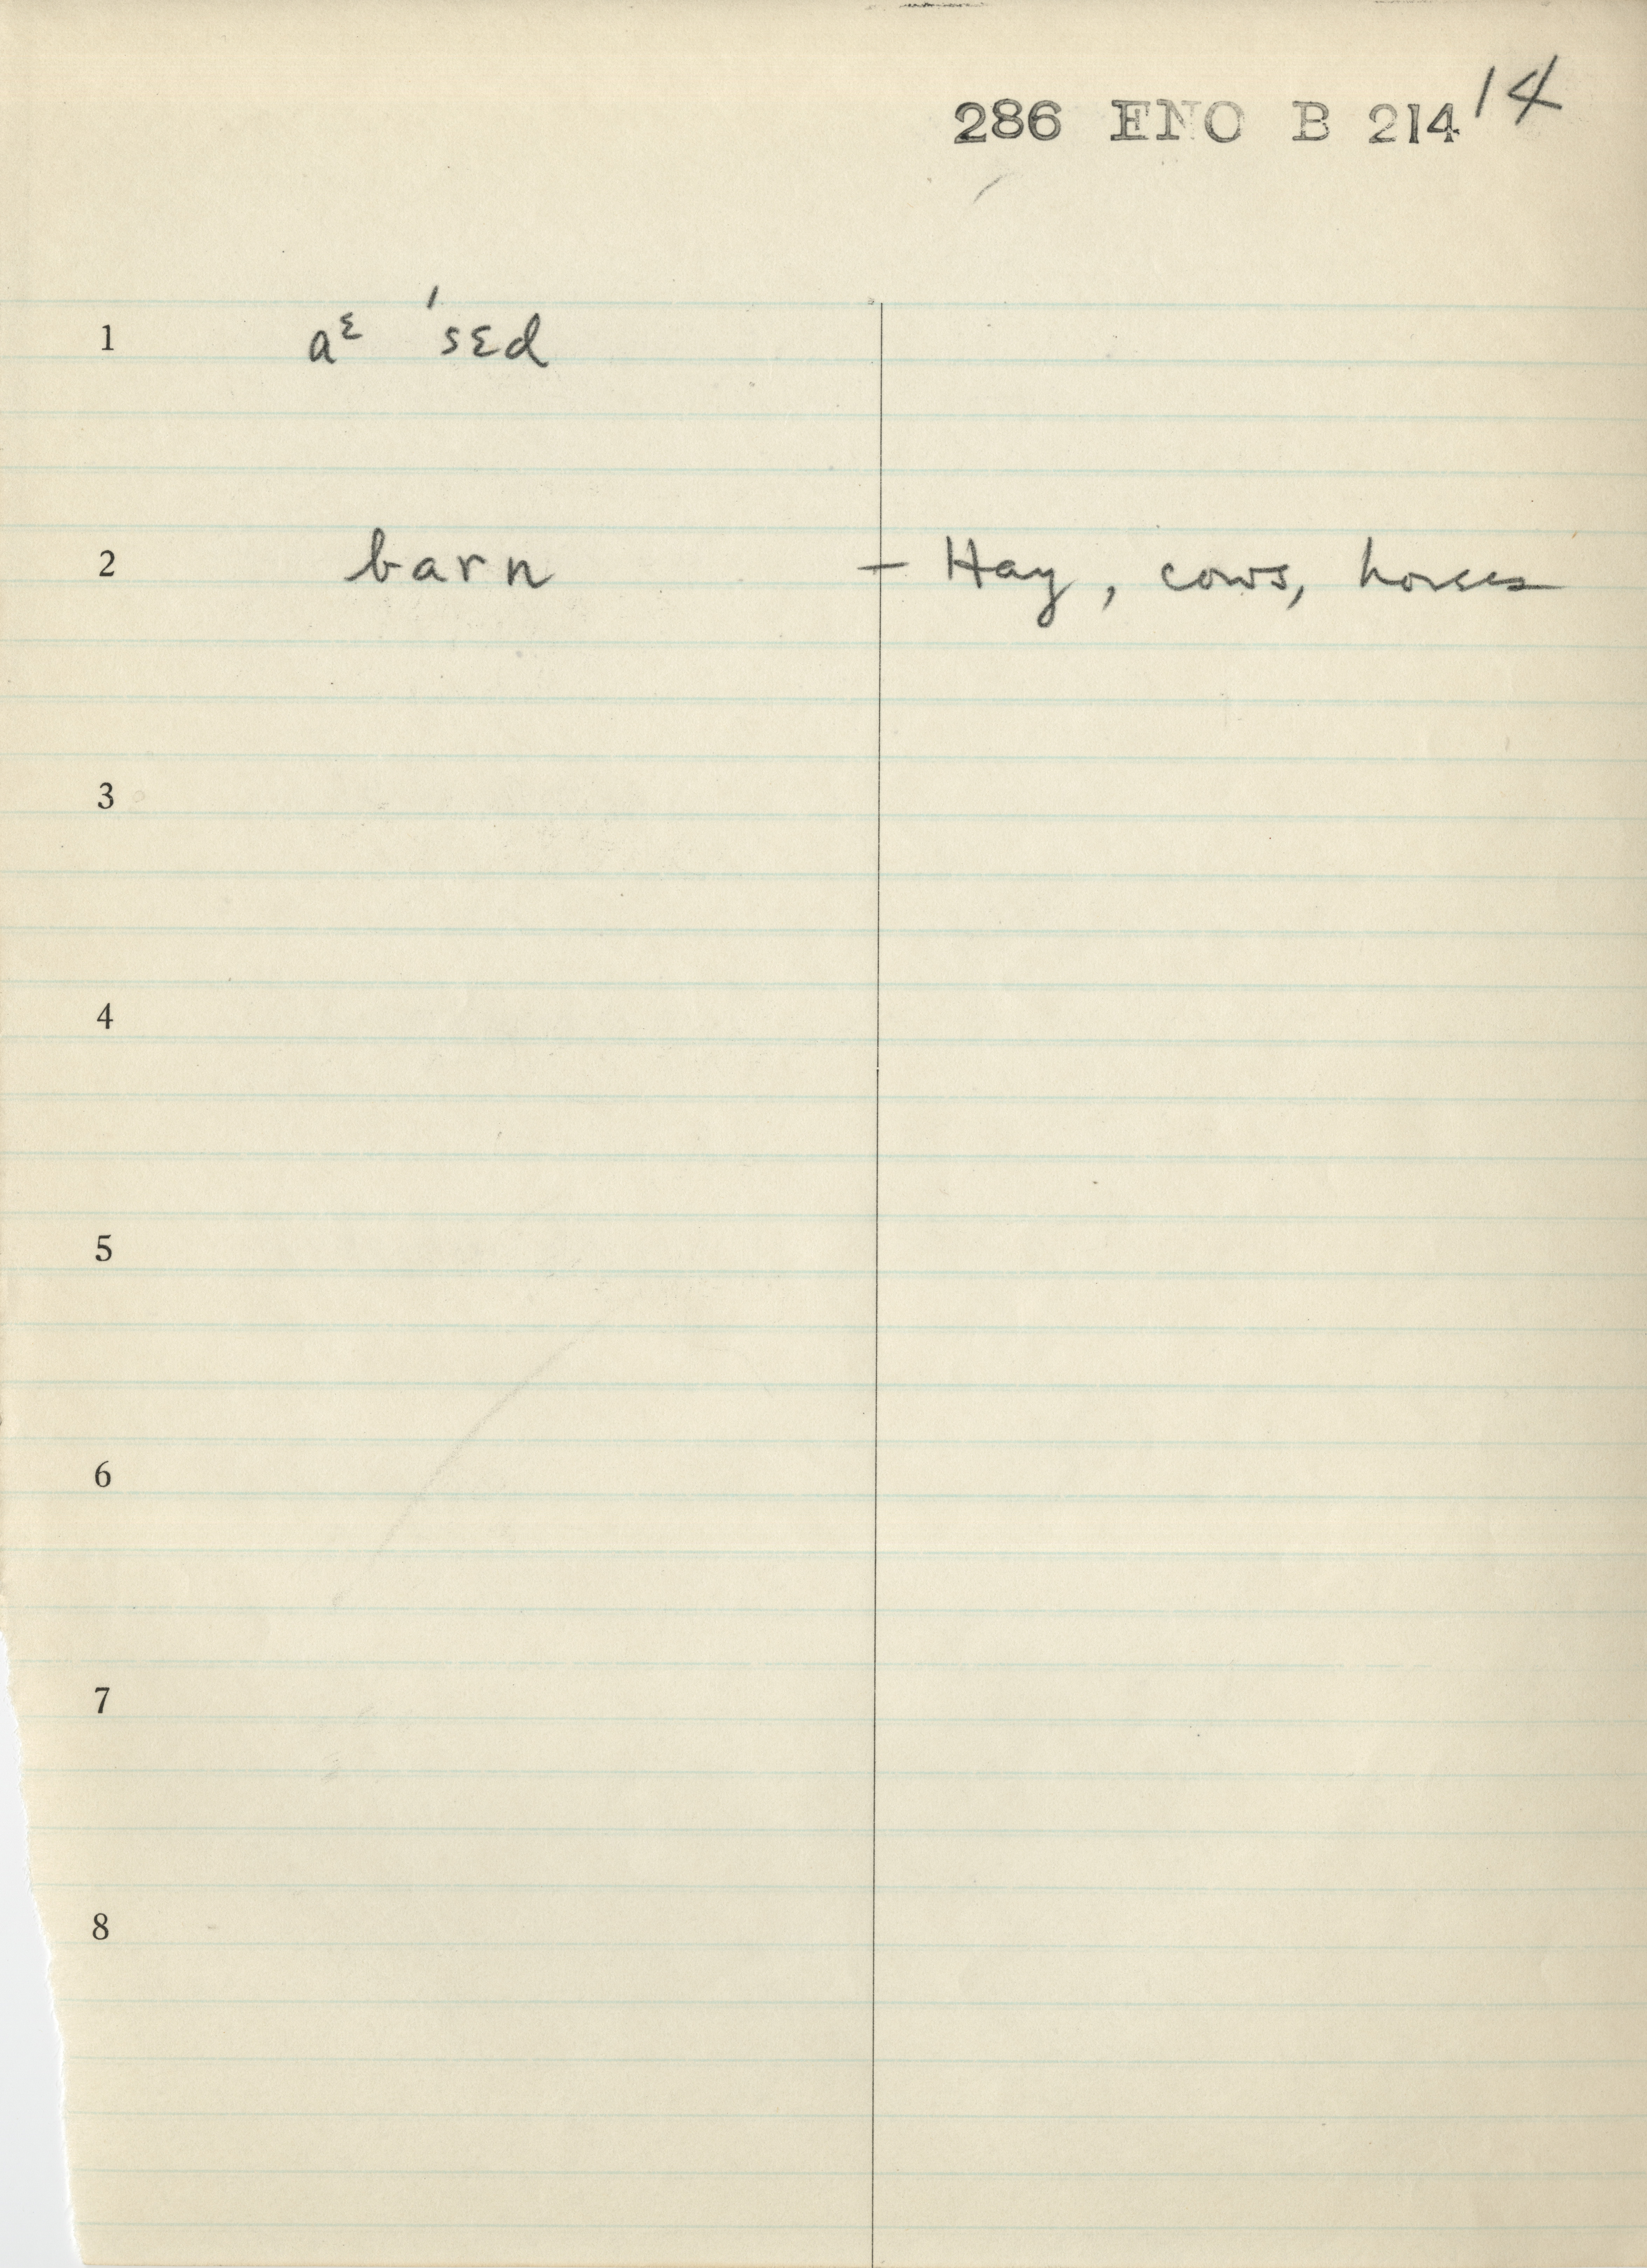 286 ENO B 214 14
1 aᵋ ˈsɛd
2 barn – Hay, cows, horses
3
4
5
6
7
8